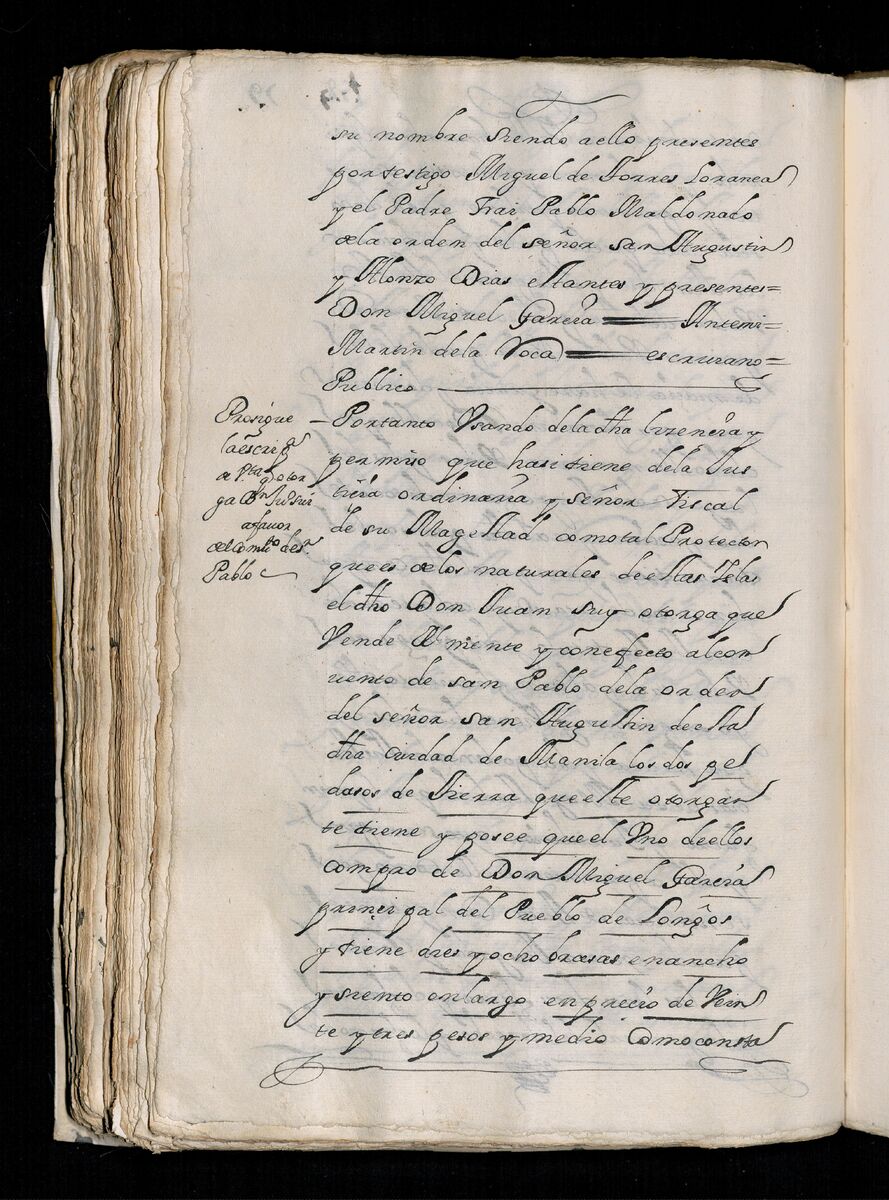 su nombre siendo aello presentes
portestigo Miguel de Torres Loranca
y el Padre Frai Pablo Maldonado
dela orden del señor san Augustin
y Alonzo Dias estantes y presentes=
Don Miguel Garcia Antemi=
Martin dela Roca escruiano=
Publico
Prosigue
la escrip.ª
de
ga Dn Ju° Sui
afauor
del de S.
Pablo
Portanto Usando dela dha lizencia y
permiso que hasi tiene dela Jus
ticia ordinaria y señor Fiscal
de su Magestad comotal Protector
quees delos naturales deestas Yslas
el dho Don Juan suy otorga que
Vende Rlmente y con efecto alcon
uento de san Pablo dela orden
del señor san Augustin deesta
dha ciudad de Manila los dos pe
dasos de Tierra queeste otorgan
te tiene y posee queel Vno deellos
compro de Don Miguel Garcia
principal del Pueblo de Longos
y tiene dies yocho brasas enancho
ysiento enlargo enprecio de Vein
te ytres pesos y medio Comoconsta